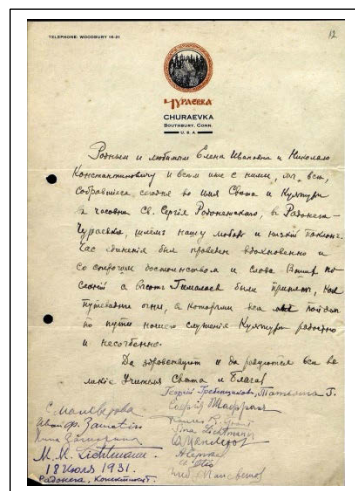 TELEPHONE: WOODBURY
12
ЧУРАЕВКА
CHURAEVKA
SOUTHBURY, CONN.
U. S. A.
Родным и любимым Елене Ивановне и Николаю
Константиновичу и всем иже с ними, мы, все,
собравшиеся сегодня во имя Света и Культуры
у часовни Св. Сергия Радонежского, в Радонега-
Чураевка, шлем нашу любовь и низкий поклон.
Час единения был проведен вдохновенно и
со строгим достоинством и слова Ваших по-
сланий с высот Гималаев были приняты, как
путеводные огни, с которыми все пойдем
по пути нашего служения Культуре радостно
и несогбенно.
Да здравствуют и да радуются все ве-
ликие Учителя Света и Блага!
Георгий Гребенщиков. Татьяна Г.
M. M. Lichtmann.
18 Июля 1931.
Радонега, Коннектикут.